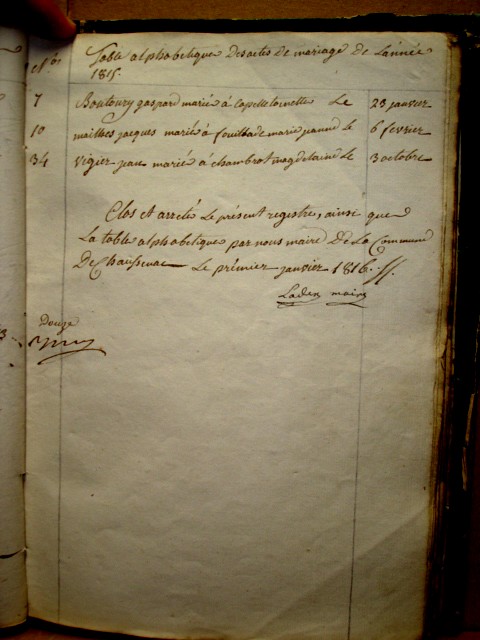 Nos Table alphabetique Des actes de mariage de L'année
1815.
7 Boutoury gaspard marié à Capelle toinette Le 23 janvier
10 mailhes jacques marié à fouilhade marie jeanne le 6 fevrier
34 vigier jean marié à chambrot magdelaine Le 3 octobre
Clos et arreté Le présent registre, ainsi que
La table alphabetique par nous maire De La Commune
De Chaussenac Le prémier janvier 1816.
Laden maire
Douze